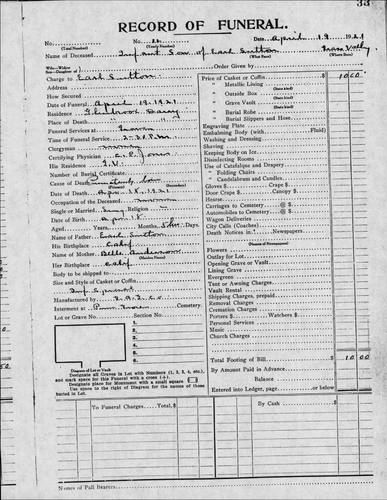 33
RECORD OF FUNERAL.
No. No. 22 Date, April 19 1921
(Total Number) (Yearly Number)
Name of Deceased Infant Son of Earl Sutton Grass Valley
(What Race) (Where Born)
Wife-Widow
Son-Daughter of
Order Given by
Charge to Earl Sutton
Address
How Secured
Date of Funeral April 19 1921
Residence Dairy
Place of Death
Funeral Services at
Time of Funeral Service 2:30 P.M.
Clergyman
Certifying Physician C. P. Jones
His Residence G.V.
Number of Burial Certificate
Cause of Death
(Primary) (Secondary)
Date of Death Apr. 18, 1921
Occupation of the Deceased
Single or Married Religion
Date of Birth Apr. 18
Aged Years Months Days
Name of Father Earl Sutton
His Birthplace Calif
Name of Mother Belle Anderson
(Maiden Name)
Her Birthplace Calif
Body to be shipped to
Size and Style of Casket or Coffin
Manufactured by
Interment at Cemetery.
Lot or Grave No. Section No.
1
2
3
4
5
6
Diagram of Lot or Vault
Designate all Graves in Lot with Numbers (1, 2, 3, 4, etc.)
and mark space for this Funeral with a cross (+).
Designate place for Monument with a small square
Use space to the right of Diagram for the names of those
buried in Lot.
Price of Casket or Coffin $ 10 00
" Metallic Lining
(State kind)
" Outside Box
(State kind)
" Grave Vault
(State kind)
" Burial Robe
(State kind)
" Burial Slippers and Hose
Engraving Plate
Embalming Body (with Fluid)
Washing and Dressing
Shaving
Keeping Body on Ice
Disinfecting Rooms
Use of Catafalque and Drapery
" Folding Chairs
" Candelabrum and Candles
Gloves $ Crape $
Door Crape $ Canopy $
Hearse
Carriages to Cemetery @ $
Automobiles to Cemetery @ $
Wagon Deliveries
City Calls (Coaches)
Death Notices in Newspapers
(Names of Newspapers)
Flowers
Outlay for Lot
Opening Grave or Vault
Lining Grave
Evergreen
Tent or Awning Charges
Vault Rental
Shipping Charges, prepaid
Removal Charges
Cremation Charges
Porters $ Watchers $
Personal Services
Music
Church Charges
Total Footing of Bill $ 10 00
By Amount Paid in Advance
Balance
Entered into Ledger, page or below
To Funeral Charges Total, $ By Cash $
Names of Pall Bearers